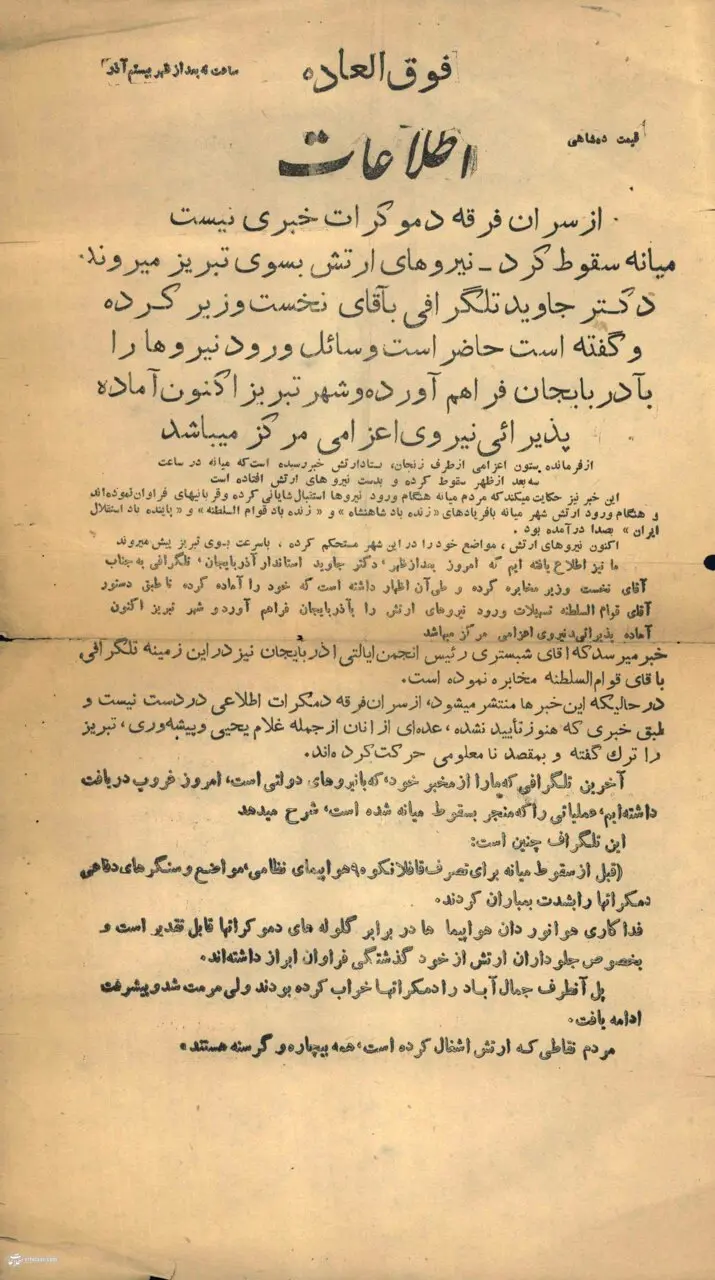 فوق العاده
ساعت ۴ بعد از ظهر بیستم آذر
اطلاعات
قیمت ده شاهی
از سران فرقه دموکرات خبری نیست
میانه سقوط کرد ـ نیروهای ارتش بسوی تبریز میروند.
دکتر جاوید تلگرافی بآقای نخست وزیر کرده
و گفته است حاضر است وسائل ورود نیروها را
بآذربایجان فراهم آورده و شهر تبریز اکنون آماده
پذیرائی نیروی اعزامی مرکز میباشد
از فرمانده ستون اعزامی از طرف زنجان، بستاد ارتش خبر رسیده است که میانه در ساعت
سه بعد از ظهر سقوط کرده و بدست نیروهای ارتش افتاده است
این خبر نیز حکایت میکند که مردم میانه هنگام ورود نیروها استقبال شایانی کرده و قربانیهای فراوان نموده‌اند
و هنگام ورود ارتش شهر میانه با فریادهای «زنده باد شاهنشاه» و «زنده باد قوام السلطنه» و «پاینده باد استقلال
ایران» بصدا درآمده بود .
اکنون نیروهای ارتش ، مواضع خود را در این شهر مستحکم کرده ، باسرعت بسوی تبریز پیش میروند
ما نیز اطلاع یافته ایم که امروز بعداز ظهر، دکتر جاوید استاندار آذربایجان، تلگرافی به جناب
آقای نخست وزیر مخابره کرده و طی آن اظهار داشته است که خود را آماده کرده تا طبق دستور
آقای قوام السلطنه تسهیلات ورود نیروهای ارتش را بآذربایجان فراهم آورد و شهر تبریز اکنون
آماده پذیرائی نیروی اعزامی مرکز میباشد
خبر میرسد که اقای شبستری رئیس انجمن ایالتی اذربایجان نیز در این زمینه تلگرافی
باقای قوام السلطنه مخابره نموده است.
در حالیکه این خبرها منتشر میشود، از سران فرقه دمکرات اطلاعی در دست نیست و
طبق خبری که هنوز تأیید نشده، عده‌ای از انان از جمله غلام یحیی و پیشه‌وری، تبریز
را ترك گفته و بمقصد نا معلومی حرکت کرده‌اند.
آخرین تلگرافی که ما را از مخبر خود، که با نیروهای دولتی است، امروز غروب دریافت
داشته‌ایم، عملیاتی را که منجر بسقوط میانه شده است، شرح میدهد
این تلگراف چنین است:
(قبل از سقوط میانه برای تصرف قافلانکوه ۹ هواپیمای نظامی، مواضع و سنگرهای دفاعی
دمکراتها را بشدت بمباران کردند.
فداکاری هوانوردان هواپیما ها در برابر گلوله های دموکراتها قابل تقدیر است و
بخصوص جلوداران ارتش از خود گذشتگی فراوان ابراز داشته‌اند.
پل آنطرف جمال آباد را دمکراتها خراب کرده بودند ولی مرمت شد و پیشرفت
ادامه یافت.
مردم نقاطی که ارتش اشغال کرده است، همه بیچاره و گرسنه هستند»